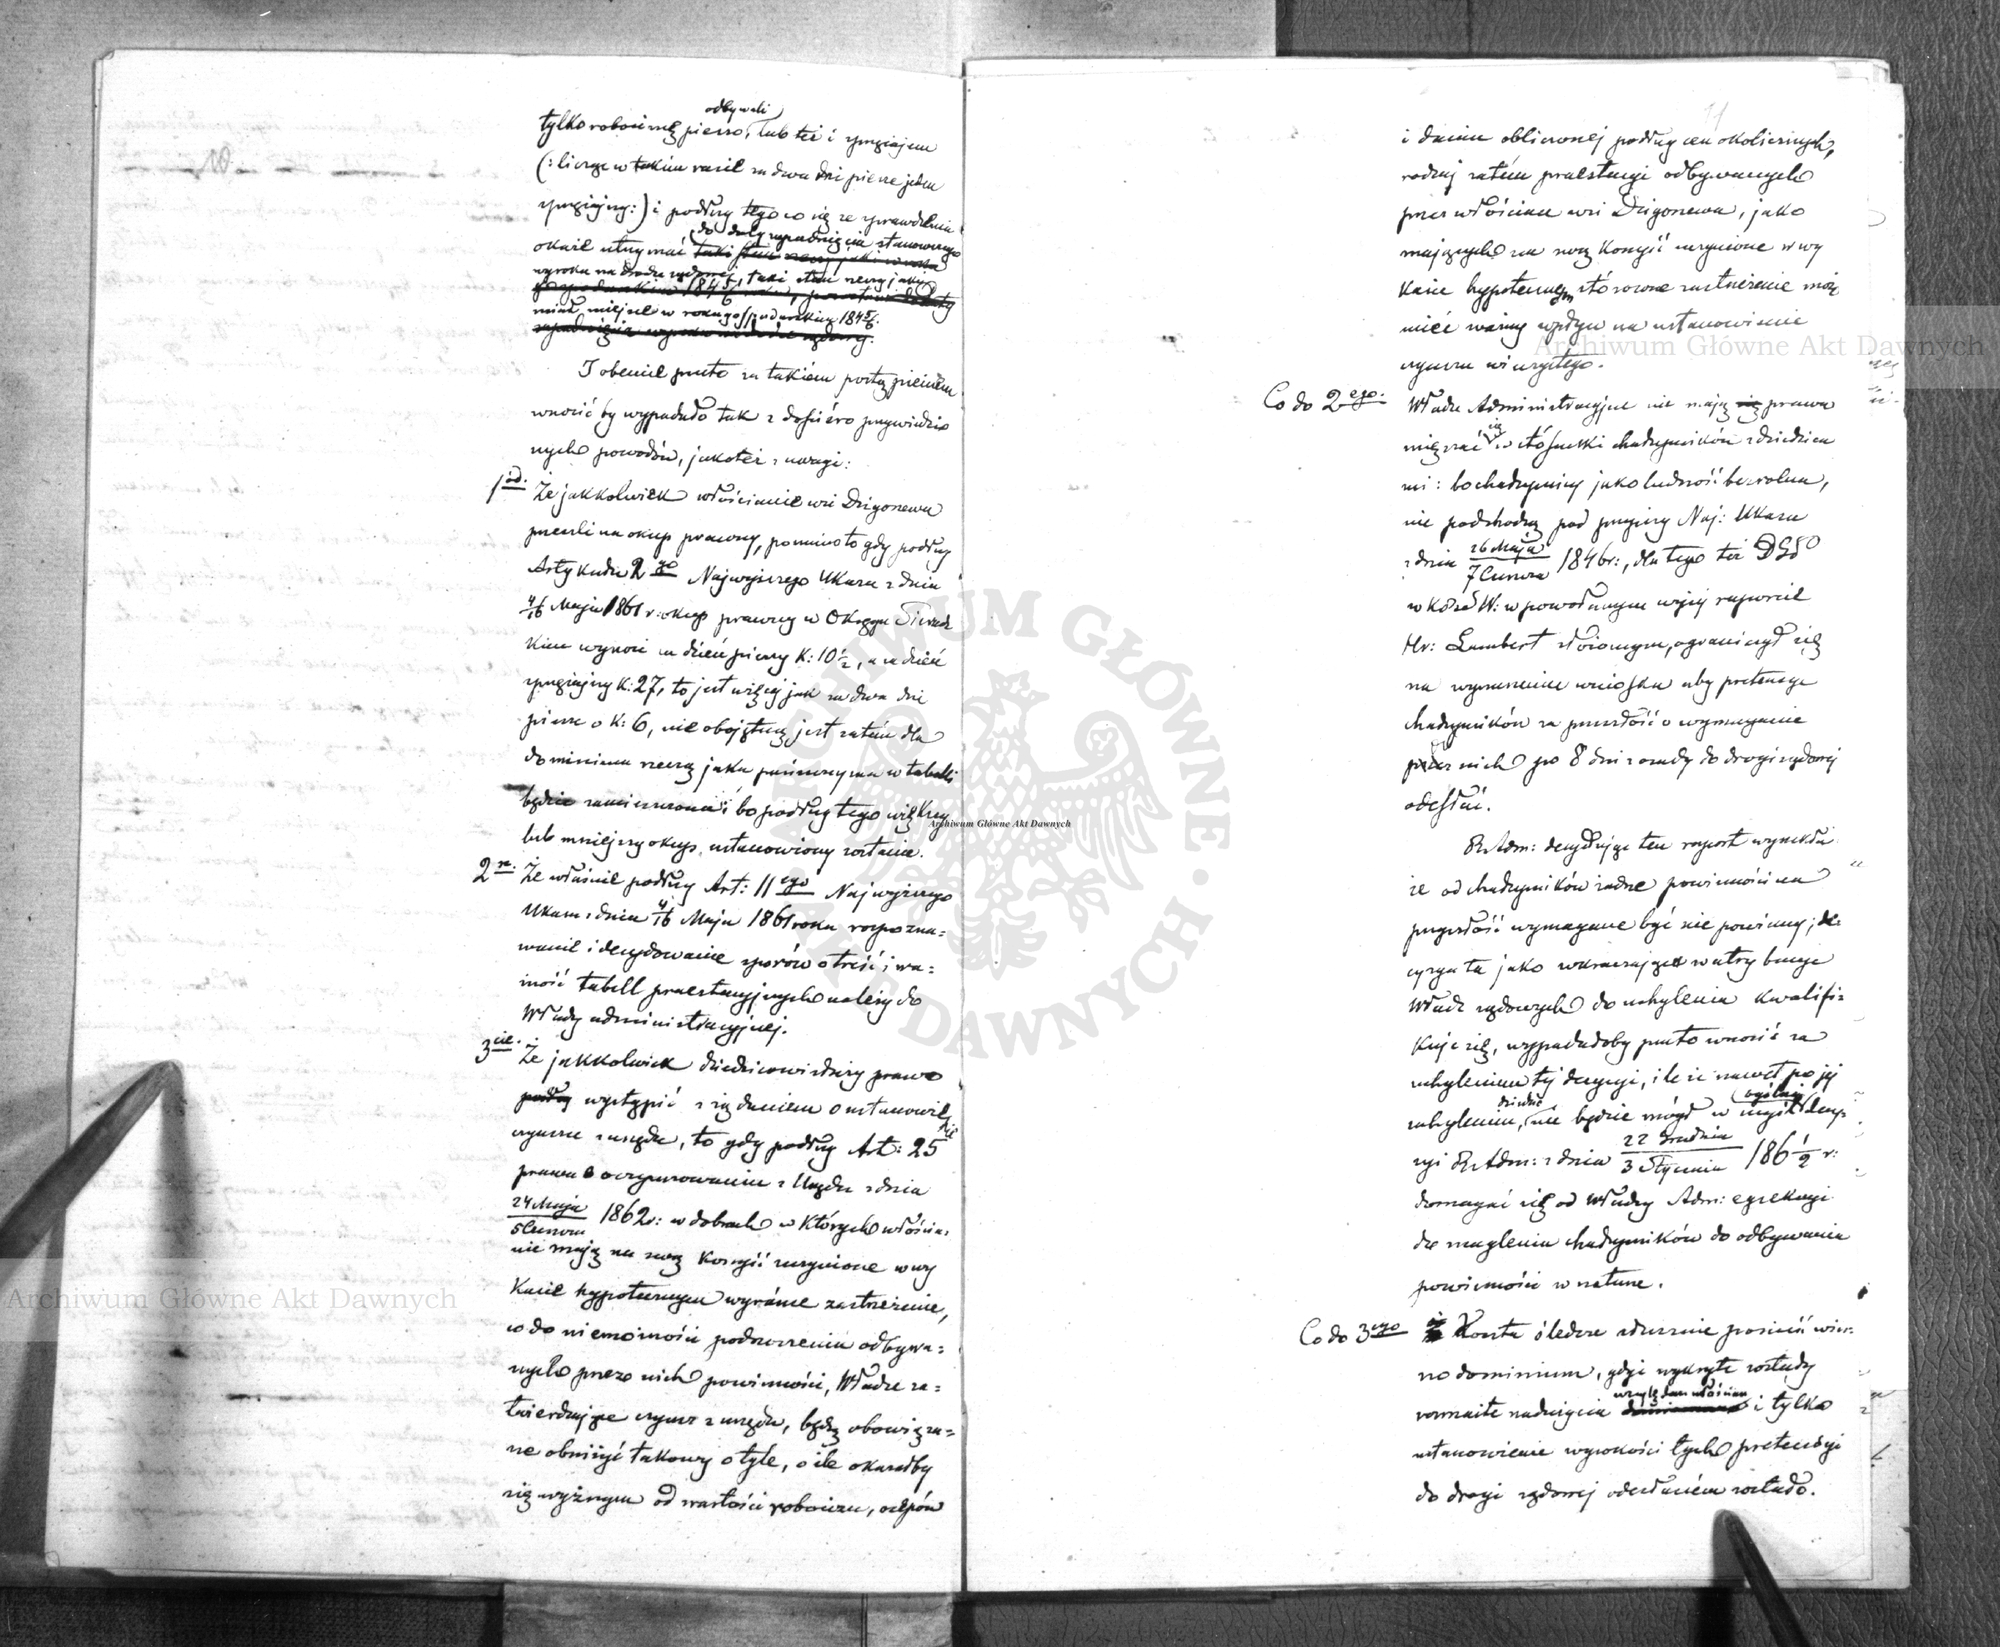 odbywali
tylko robociznę pieszo, lub też i sprzężajem
(: licząc w takim razie za dwa dni piesze jeden
sprzężajny :) i podług tego co się ze sprawdzenia
okaże utrzymać do daty zapadnięcia stanowczego
wyroku na drodze sądowej, taki stan rzeczy jaki
miał miejsce w roku gospodarskim 1845/6.
I obecnie przeto za takiem postąpieniem
wnosić by wypadało tak z dopiéro przywiedzio
nych powodów, jakoteż z uwagi:
1od. Że jakkolwiek włościanie wsi Dzigorzewa
przeszli na okup prawny, pomimo to gdy podług
Artykułu 2go Najwyższego Ukazu z dnia
4/16 Maja 1861 r: okup prawny w Okręgu Sieradz
kim wynosi za dzień pieszy K: 10 1/2, a za dzień
sprzężajny K: 27, to jest więcej jak za dwa dni
piesze o K: 6, nie obojętną jest zatém dla
dominium rzeczą jaka pańszczyzna w tabelli
będzie zamieszczona: bo podług tego większy
lub mniejszy okup ustanowiony zostanie.
2re. Że właśnie podług Art: 11ego Najwyższego
Ukazu z dnia 4/16 Maja 1861 roku rozpozna=
wanie i decydowanie sporów o treść i wa=
żność tabell praestacyjnych należy do
Władzy administracyjnej.
3cie. Że jakkolwiek dziedzicowi służy prawo
podług wystąpić z żądaniem o ustanowie
nie
czynszu z urzędu, to gdy podług Art: 25
prawa o oczynszowaniu z Urzędu z dnia
24 Maja
5 Czerwca 1862 r: w dobrach w których włościa=
nie mają na swą korzyść uczynione w wy
kazie hypotecznym wyraźne zastrzeżenie,
co do niemożności podwyższenia odbywa=
nych przez nich powinności, Władze za=
twierdzające czynsz z urzędu, będą obowiąza=
ne obniżyć takowy o tyle, o ile okazałby
się wyższym od wartości robocizn, osepów
i danin obliczonej podług cen okolicznych,
rodzaj zatém praestacyi odbywanych
przez włościan wsi Dzigorzewa, jako
mających na swą korzyść uczynione w wy
kazie hypotecznym stósowne zastrzeżenie może
mieć ważny wpływ na ustanowienie
czynszu wieczystego.
Co do 2ego. Władze Administracyjne nie mają się prawa
się
mięszać w stósunki chałupników z dziedzica
mi: bo chałupnicy jako ludność bezrolna,
nie podchodzą pod przepisy Naj: Ukazu
z dnia 26 Maja
7 Czerwca 1846 r:, dla tego też
w powołanym wyżej raporcie
Hr: Lambert złożonym, ograniczył się
na wyrzeczenie wniosku aby pretensye
chałupników za przeszłość o wymaganie
przez nich po 8 dni z osady do drogi sądowej
odesłać.
R. Adm: decydując ten raport wyrzekła
że od chałupników żadne powinności na
przyszłość wymagane być nie powinny; de=
cyzya ta jako wkraczająca w atrybucye
Władz sądowych do uchylenia kwalifi=
kuje się, wypadałoby przeto wnosić za
uchyleniem téj decyzyi, ile że nawet po jej
dziedzic ogólnej
uchyleniu, nie będzie mógł w myśl decy
zyi R. Adm: z dnia 22 Grudnia
3 Stycznia 186 1/2 r:
domagać się od Władzy Adm: egzekucyi
dla naglenia chałupników do odbywania
powinności w naturze.
Co do 3ego Koszta śledcze słusznie ponieść win=
no dominium, gdyż wykryte zostały
względem włościan
rozmaite nadużycia i tylko
ustanowienie wysokości tych pretensyi
do drogi sądowej odesłaném zostało.
Archiwum Główne Akt Dawnych
Archiwum Główne Akt Dawnych
Archiwum Główne Akt Dawnych
ARCHIWUM GŁÓWNE AKT DAWNYCH